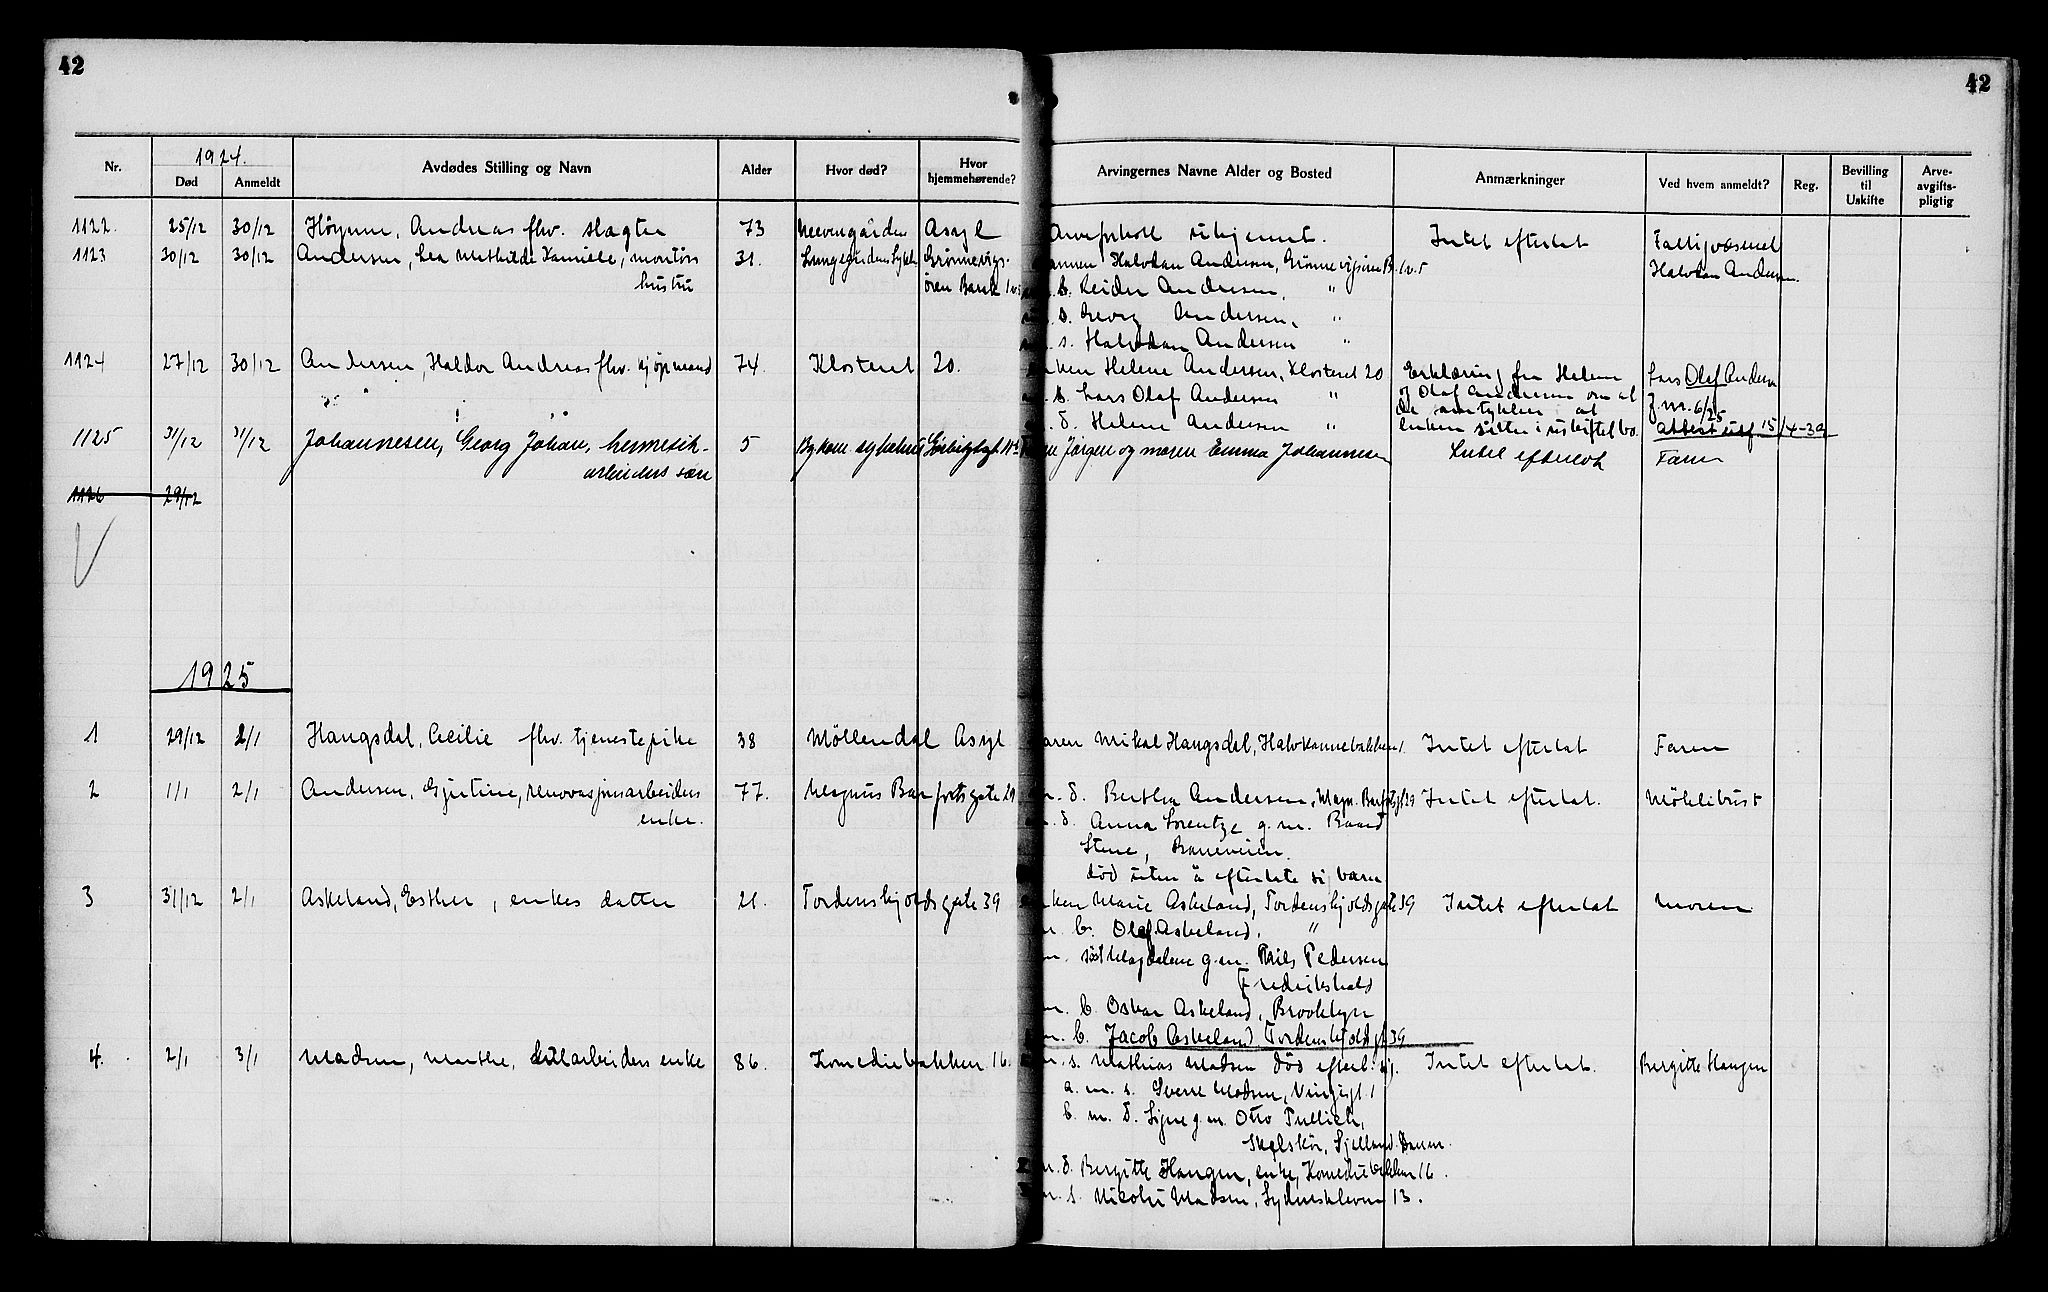 42
42
1924.
Nr.
Død
Anmeldt
Avdødes Stilling og Navn
Alder
Hvor død?
Hvor
hjemmehørende?
Arvingernes Navne Alder og Bosted
Anmærkninger
Ved hvem anmeldt?
Reg.
Bevilling
til
Uskifte
Arve-
avgifts-
pligtig
1122. 25/12 30/12 Høynne, Andreas fhv. slagter 73 Neevengården Asyl Arveforhold ukjennt. Intet efterlat Fattigvæsenet
1123 30/12 30/12 Andersen, Lea Mathilde Kamilla, montørs 31. Lungegårdens Sykeh Grønnevigs- Halvdan Andersen, Grønnevigsøren B. 1 v. 5 Halvdan Andersen.
hustru øren Barak 1 v. 5 b. Reidar Andersen, "
s. Georg Andersen, "
s. Halvdan Andersen "
1124 27/12 30/12 Andersen, Haldor Andreas fhv. kjøpmand 74. Klosteret 20. enken Helene Andersen, Klosteret 20 Erklæring fra Helene Lars Olaf Andersen
s. Lars Olaf Andersen " og Olaf Andersen om at J.nr. 6/25
de samtykker i at
d. Helene Andersen " enken sitter i uskiftet bo. Attest utst 15/4-39
1125 31/12 31/12 Johannesen, Georg Johan, hermetik- 5 Bykom. sykehus Jørgen og moren Emma Johannesen Intet efterlat Faren
arbeiders søn
1126 29/12
1925
1 29/12 2/1 Haugsdal, Cecilie fhv. tjenestepike 38 Møllendal Asyl Faren Mikal Haugsdal, Halvkannebakken 1 Intet efterlat Faren
2 1/1 2/1 Andersen, Gjertine, renovasjonsarbeiders 77. Magnus Barfotsgate 29 m. d. Bertha Andersen, Magn. Barfotsgt 29 Intet efterlat. Møhlibust
enke. m. d. Anna Lorentze g. m. Baard
Stene, Baneveien.
død uten å efterlate sig barn
3 31/12 2/1 Askeland, Esther, enkes datter 21. Tordenskjoldsgate 39 enken Marie Askeland, Tordenskjoldsgate 39 Intet efterlat Moren
m. b. Olaf Askeland, "
m. søst Magdalene g.m. Nils Pedersen
Fredrikshald
m. b. Oskar Askeland, Brooklyn
m. b. Jacob Askeland Tordenskjoldsgt 39
4. 2/1 3/1 Madsen, Marthe, arbeiders enke 86. Komediebakken 16. m. s. Mathias Madsen død efterl: Intet efterlat. Bergitte Haugen
a. m. s. Sverre Madsen, Vingsgt. 1
b. m. d. Signe g.m. Otto Tullich,
Skelskør, Sjelland Danm.
m. d. Bergitte Haugen, enke, Komediebakken 16.
m. s. Nikolai Madsen, Sydneskleven 13.